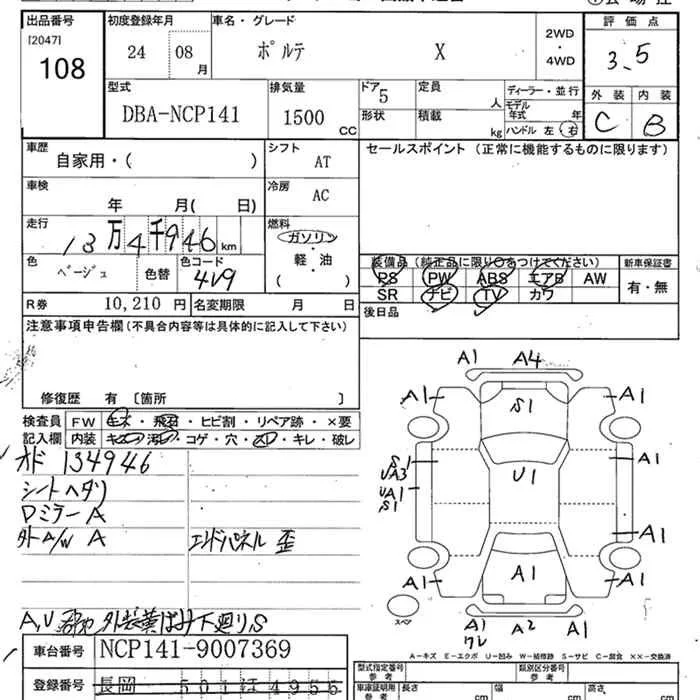 出品番号 初度登録年月 車名・グレード 評価点
[2047]
108 24 08月 ポルテ X 2WD・4WD 3.5
型式 排気量 ドア 5 定員 人 ディーラー・並行 外装 内装
DBA-NCP141 1500 CC 形状 積載 kg モデル年式 年 ハンドル 左 右 C B
車歴 自家用・( ) シフト AT セールスポイント(正常に機能するものに限ります)
車検 年 月( 日) 冷房 AC
走行 13万4千946km 燃料 ガソリン・軽・油 ( )
色 ベージュ 色替 色コード 4V9
装備品(純正品に限り○をつけてください) 新車保証書
PS PW ABS エアB AW 有・無
SR ナビ TV カワ
R券 10,210円 名変期限 月 日 後日品
注意事項申告欄(不具合内容等は具体的に記入して下さい)
修復歴 有 [箇所
検査員記入欄 FW キズ・飛石・ヒビ割・リペア跡・×要
内装 キズ・汚レ・コゲ・穴・スレ・キレ・破レ
オド 134946
シートヘタリ
Dミラー A
外A/W A エンドパネル 歪
下廻りS
車台番号 NCP141-9007369
登録番号 長岡 501 4955
A1 A4
A1 S1 A1
S1
UA3 U1 A1
UA1
S1 A1
A1 A1 A1
スペア A1 A2 A1
ワレ
A-キズ E-エクボ U-凹み W-補修跡 S-サビ C-腐食 XX-交換済
型式指定番号 類別区分番号
車庫証明用参考 長さ cm 幅 cm 高さ cm